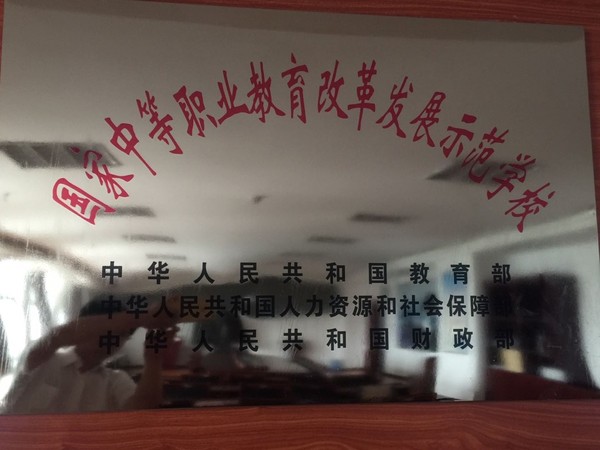 国家中等职业教育改革发展示范学校
中华人民共和国教育部
中华人民共和国人力资源和社会保障部
中华人民共和国财政部